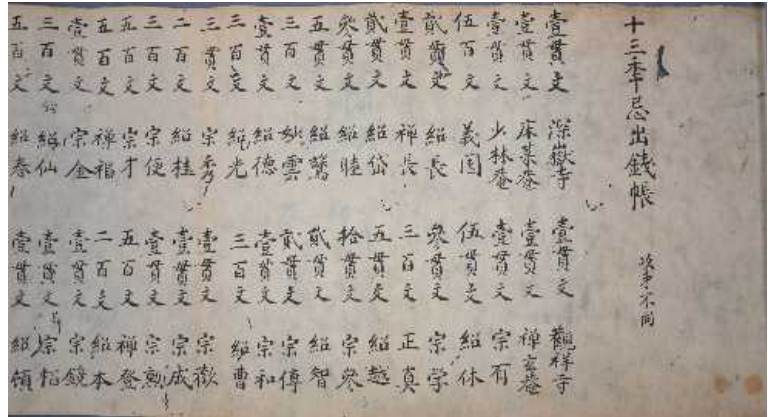 十三年忌出錢帳 次第不同
壹貫文 深嶽寺 壹貫文 觀祥寺
壹貫文 床菜菴 壹貫文 禅玄菴
壹貫文 少林菴 壹貫文 宗有
伍百文 義圓 伍貫文 紹休
貳貫文 紹長 參貫文 宗学
壹貫文 禅長 三百文 正真
貳貫文 紹岱 五貫文 紹越
參貫文 紹睦 拾貫文 宗參
五貫文 紹 貳貫文 紹智
三百文 妙雲 貳貫文 宗傅
壹貫文 紹德 壹貫文 宗和
三百文 紹光 三百文 紹曹
三貫文 宗秀 壹貫文 宗歡
二百文 紹桂 壹貫文 宗成
三百文 宗便 壹貫文 宗勲
五百文 宗才 五百文 禅登
五百文 禅福 二百文 紹本
壹貫文 宗金 壹貫文 宗鏡
三百文 紹仙 壹貫文 宗韜
五百文 紹春 壹貫文 紹領